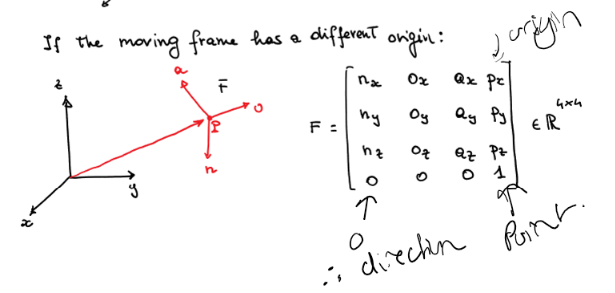 If the moving frame has a different origin:
origin
z
a
F̄
o
P
n
y
x
F = [ nx ox ax px
ny oy ay py
nz oz az pz
0 0 0 1 ] ∈ ℝ⁴ˣ⁴
0
∴ direction
Point.